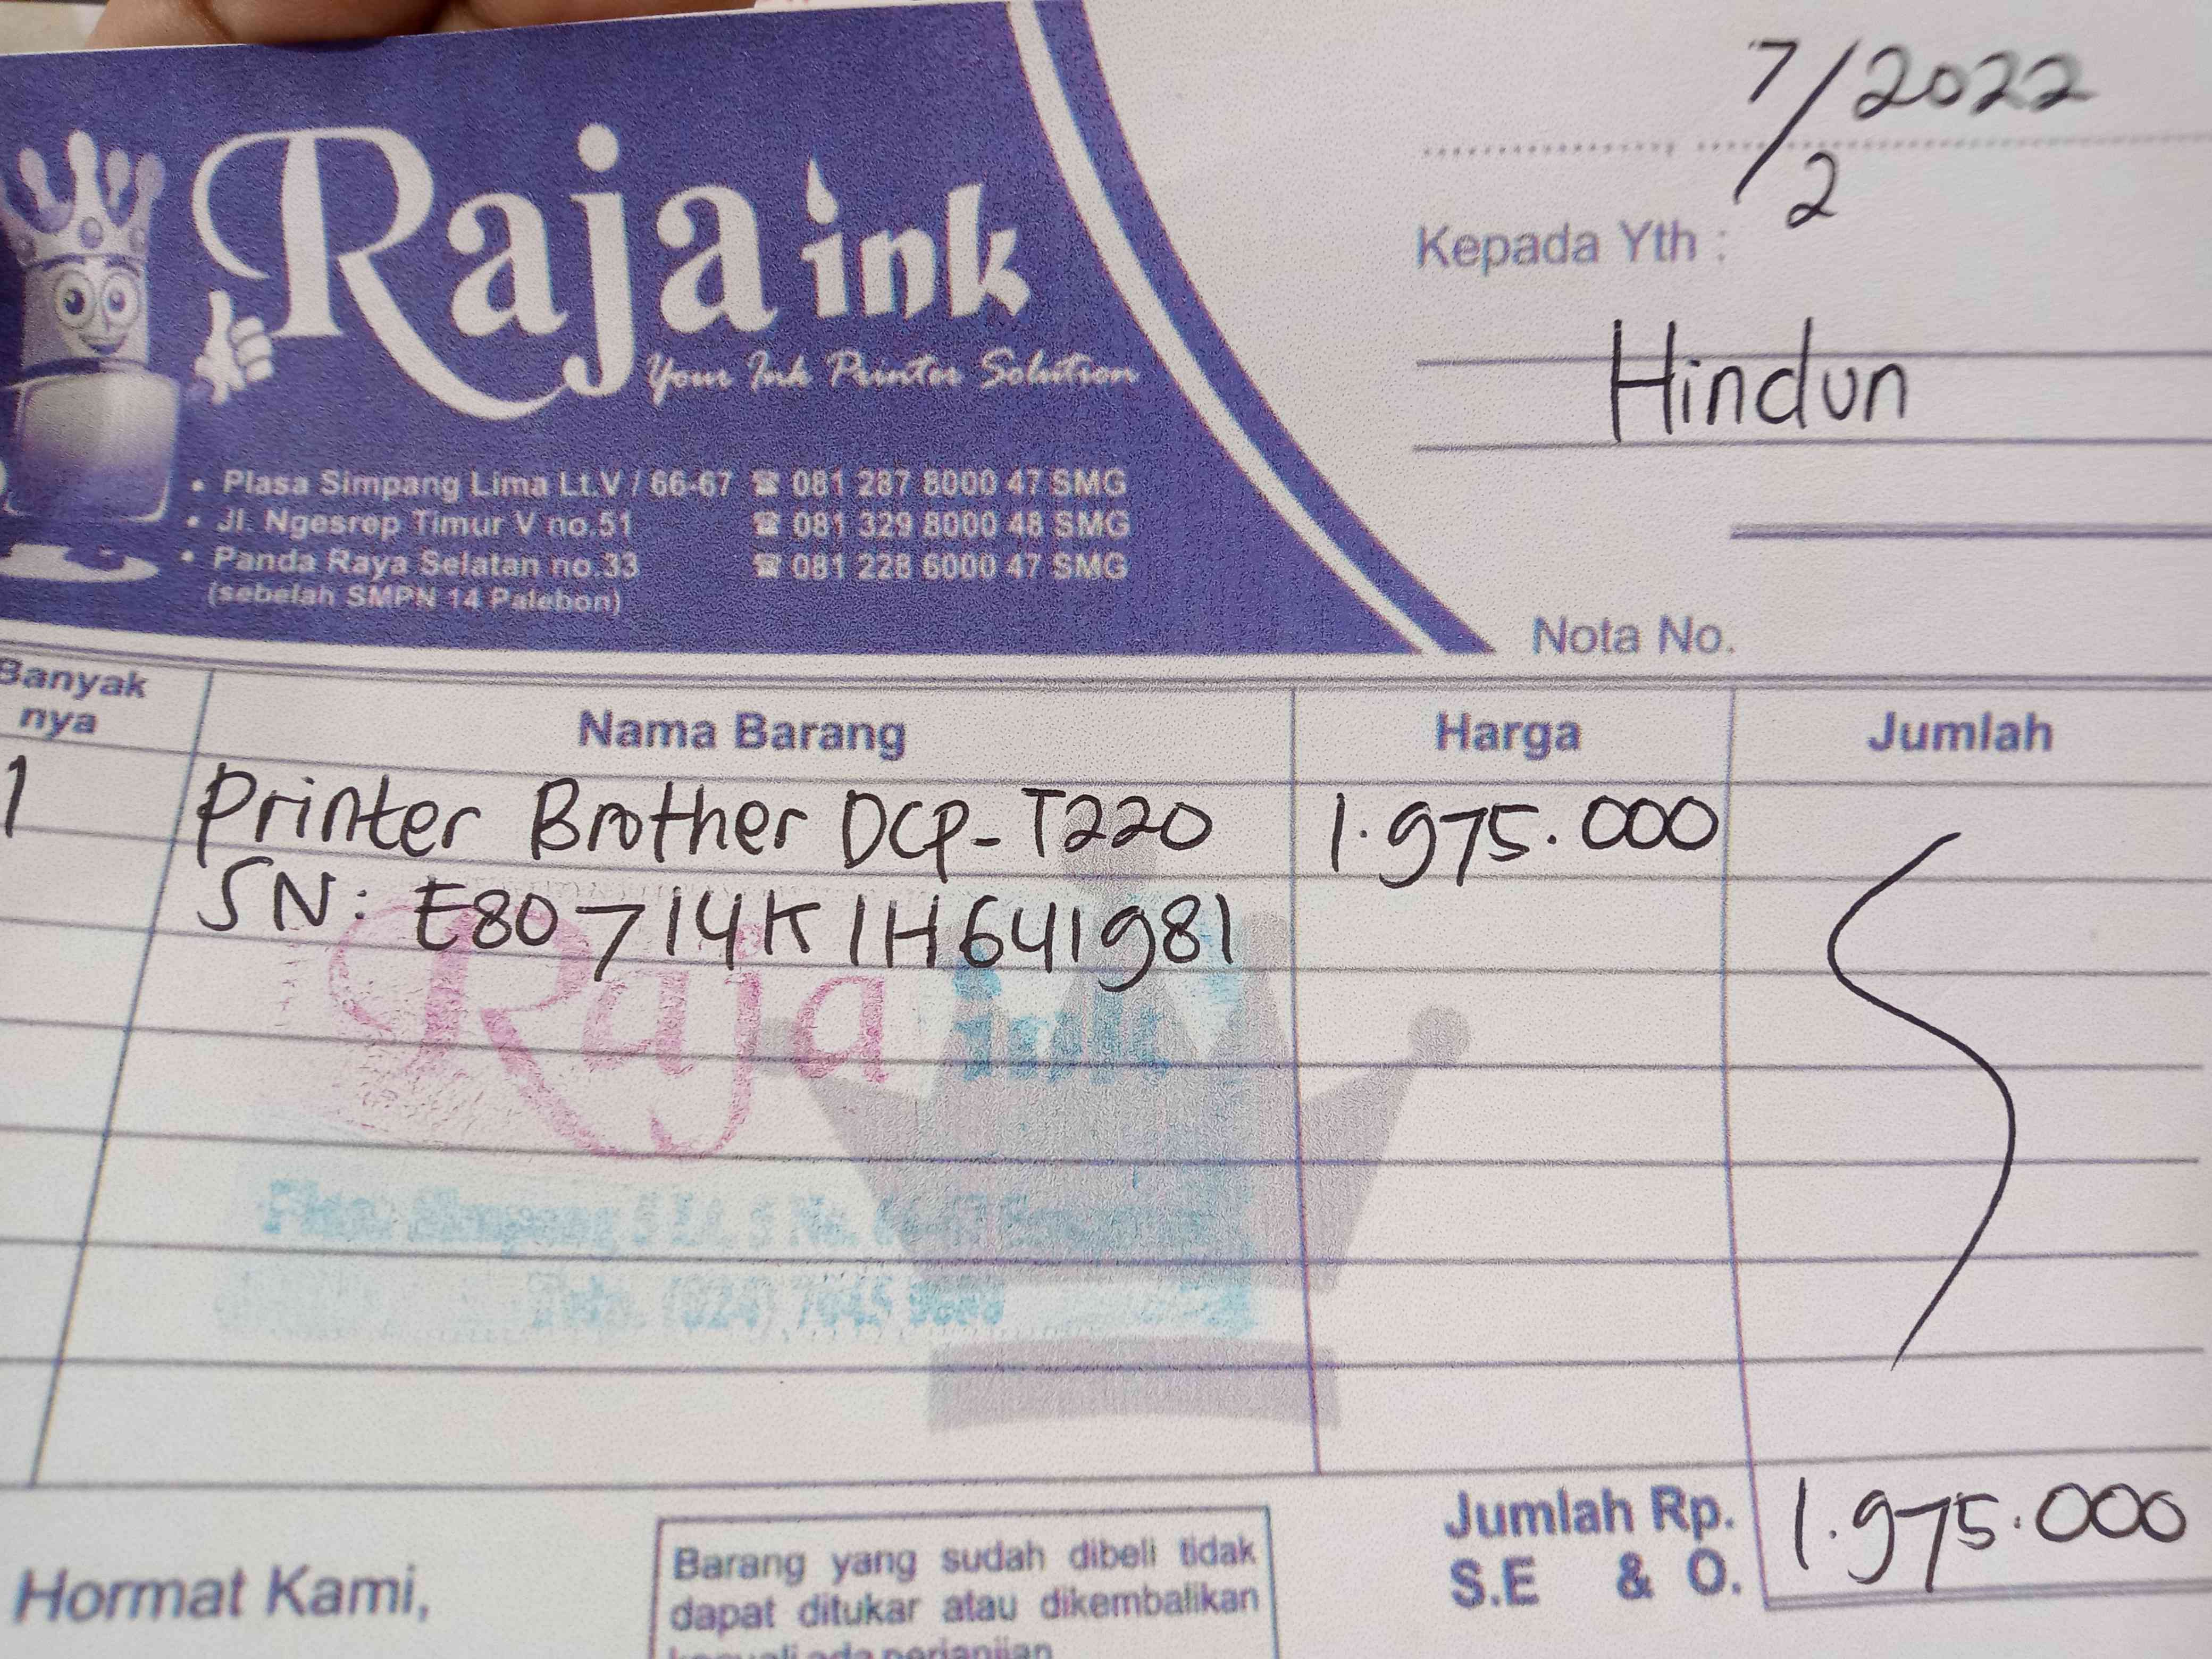 7/2 2022
Raja ink
Your Ink Printer Solution
• Plasa Simpang Lima Lt.V / 66-67 ☎ 081 287 8000 47 SMG
• Jl. Ngesrep Timur V no.51 ☎ 081 329 8000 48 SMG
• Panda Raya Selatan no.33 ☎ 081 228 6000 47 SMG
(sebelah SMPN 14 Palebon)
Kepada Yth :
Hindun
Nota No.
Banyak nya Nama Barang Harga Jumlah
1 Printer Brother DCP-T220 1.975.000
SN: E80714K1H641981
Raja ink
Simpang 5 Lt. 5 No.
Telp. (024)
Jumlah Rp. 1.975.000
S.E & O.
Hormat Kami,
Barang yang sudah dibeli tidak
dapat ditukar atau dikembalikan
kecuali ada perjanjian